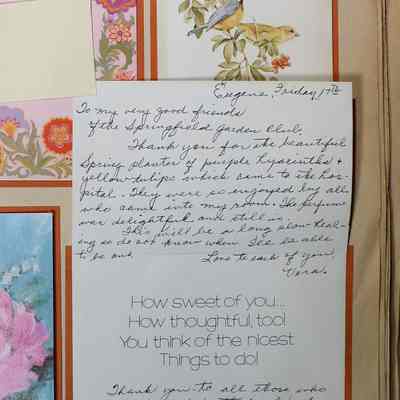 Eugene, Friday 17th
To my very good friends
of the Springfield Garden Club.
Thank you for the beautiful
Spring planter of purple hyacinths +
yellow tulips which came to the hos-
pital. They were so enjoyed by all
who came into my room. The perfume
was delightful and still is.
This will be a long slow heal-
ing so do not know when I'll be able
to be out. Love to each of you,
Vera.
How sweet of you...
How thoughtful, too!
You think of the nicest
Things to do!
Thank you to all those who